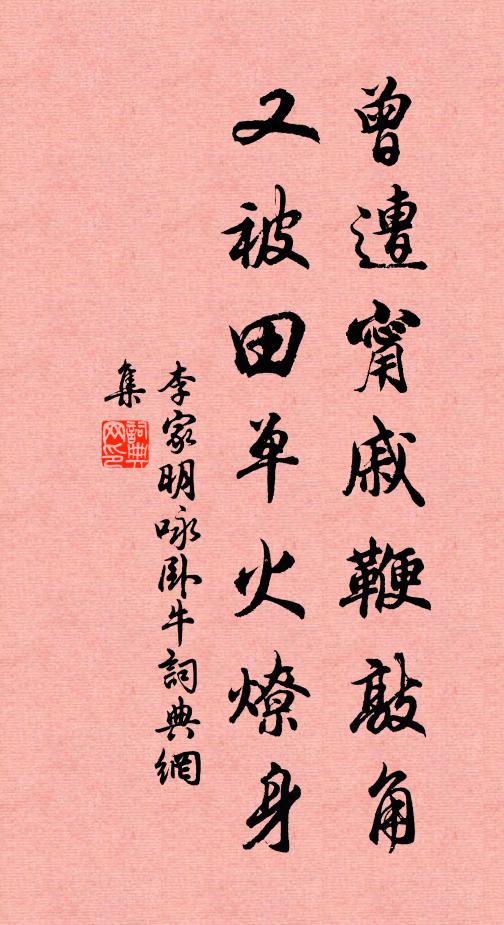 曾遭甯戚鞭敲角
又被田单火燎身
李家明咏卧牛詞典網
集
詞典
网印